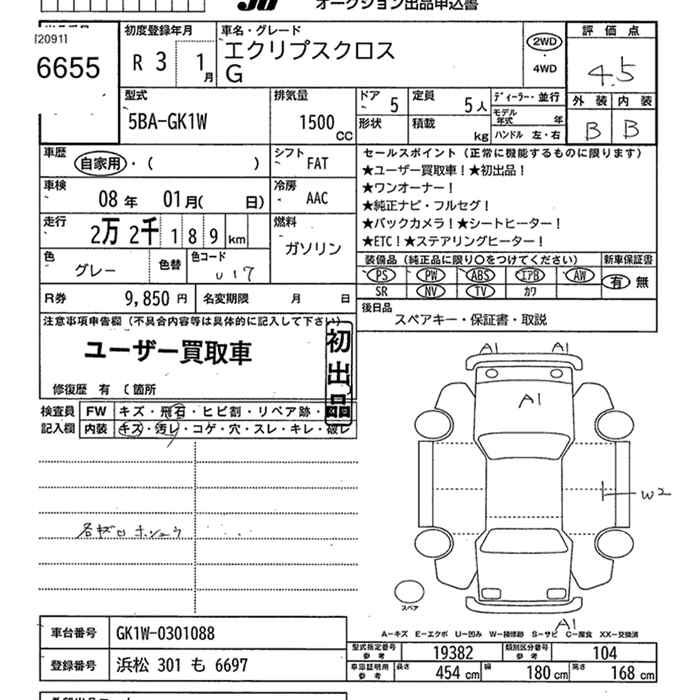 オークション出品申込書
120911
6655
初度登録年月
R 3 1月
車名・グレード
エクリプスクロス
G
2WD
4WD
評価点
4.5
外装 内装
B B
型式
5BA-GK1W
排気量
1500 CC
ドア 5
定員 5人
ディーラー・並行
形状
積載 kg
モデル年式 年
ハンドル 左・右
車歴
自家用・( )
シフト
FAT
車検
08年 01月( 日)
冷房
AAC
走行
2万 2千 1 8 9 km
燃料
ガソリン
色
グレー
色替
色コード
U17
R券 9,850円 名変期限 月 日
セールスポイント(正常に機能するものに限ります)
★ユーザー買取車!★初出品!
★ワンオーナー!
★純正ナビ・フルセグ!
★バックカメラ!★シートヒーター!
★ETC!★ステアリングヒーター!
装備品(純正品に限り○をつけてください)
新車保証書
PS PW ABS エアB AW
有 無
SR NV TV カワ
後日品
スペアキー・保証書・取説
注意事項申告欄(不具合内容等は具体的に記入して下さい)
ユーザー買取車
初出品
修復歴 有 (箇所
検査員 FW キズ・飛石・ヒビ割・リペア跡・
記入欄 内装 キズ・汚レ・コゲ・穴・スレ・キレ・破レ
A1 A1
A1
W2
スペア
A1
A−キズ E−エクボ U−凹み W−補修跡 S−サビ C−腐食 XX−交換済
車台番号 GK1W-0301088
登録番号 浜松 301 も 6697
型式指定番号 参考 19382
類別区分番号 参考 104
車庫証明用 参考 長さ 454 cm 幅 180 cm 高さ 168 cm